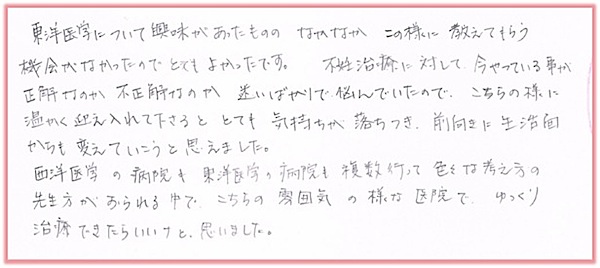 東洋医学について興味があったものの なかなか この様に 教えてもらう
機会がなかったので とてもよかったです。 不妊治療に対して、今やっている事が
正解なのか 不正解なのか 迷いばかりで 悩んでいたので、こちらの様に
温かく迎え入れて下さると とても 気持ちが 落ちつき、前向きに生活面
からも変えていこうと思えました。
西洋医学の病院も 東洋医学の病院も 複数行って 色々な考え方の
先生方がおられる中で、こちらの 雰囲気 の様な 医院で、ゆっくり
治療できたらいいナと、思いました。